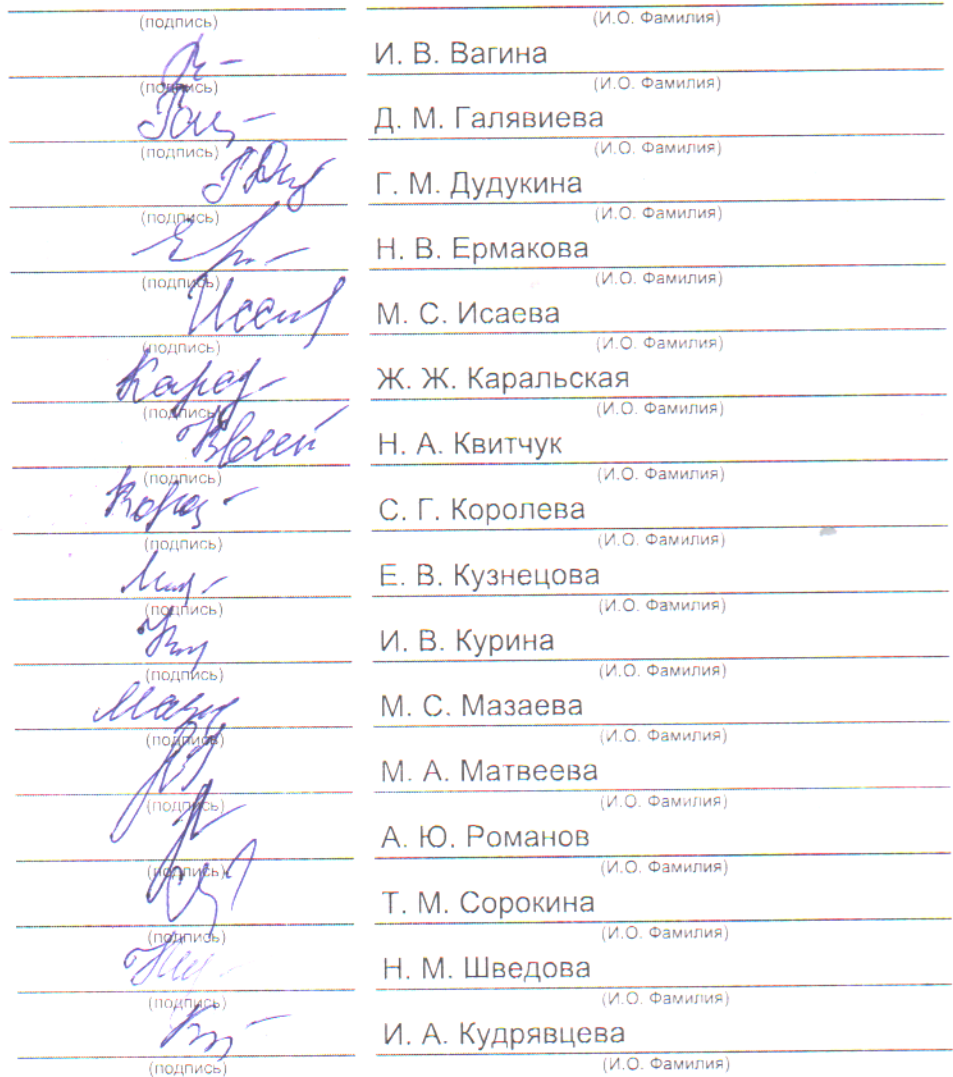 (подпись) (И.О. Фамилия)
И. В. Вагина
(подпись) (И.О. Фамилия)
Д. М. Галявиева
(подпись) (И.О. Фамилия)
Г. М. Дудукина
(подпись) (И.О. Фамилия)
Н. В. Ермакова
(подпись) (И.О. Фамилия)
М. С. Исаева
(подпись) (И.О. Фамилия)
Ж. Ж. Каральская
(подпись) (И.О. Фамилия)
Н. А. Квитчук
(подпись) (И.О. Фамилия)
С. Г. Королева
(подпись) (И.О. Фамилия)
Е. В. Кузнецова
(подпись) (И.О. Фамилия)
И. В. Курина
(подпись) (И.О. Фамилия)
М. С. Мазаева
(подпись) (И.О. Фамилия)
М. А. Матвеева
(подпись) (И.О. Фамилия)
А. Ю. Романов
(подпись) (И.О. Фамилия)
Т. М. Сорокина
(подпись) (И.О. Фамилия)
Н. М. Шведова
(подпись) (И.О. Фамилия)
И. А. Кудрявцева
(подпись) (И.О. Фамилия)